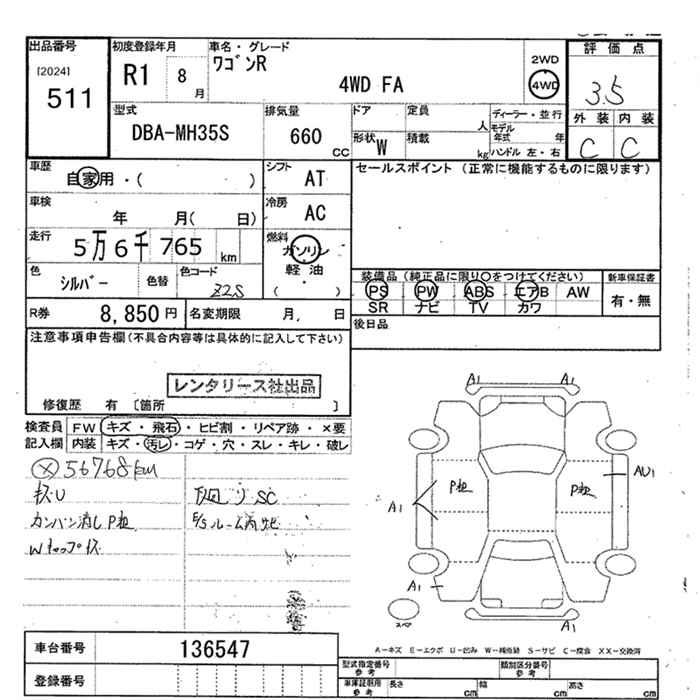 出品番号
[2024]
511
初度登録年月
R1 8月
車名・グレード
ワゴンR
4WD FA
2WD
4WD
評価点
3.5
外装 内装
C C
型式
DBA-MH35S
排気量
660 cc
ドア
形状 W
定員 人
積載 kg
ディーラー・並行
モデル年式 年
ハンドル 左・右
車歴
自家用・( )
シフト AT
セールスポイント (正常に機能するものに限ります)
車検
年 月( 日)
冷房 AC
走行
5万6千765 km
燃料
ガソリン
軽油
・
( )
色
シルバー
色替
色コード
Z2S
装備品 (純正品に限り○をつけてください)
新車保証書
PS PW ABS エアB AW
SR ナビ TV カワ
有・無
R券 8,850円
名変期限 月, 日
後日品
注意事項申告欄 (不具合内容等は具体的に記入して下さい)
レンタリース社出品
修復歴 有 [箇所 ]
検査員記入欄
FW キズ・飛石・ヒビ割・リペア跡・×要
内装 キズ・汚レ・コゲ・穴・スレ・キレ・破レ
ⓧ56768km
キズU
下回りSC
カンバン消しP粗
F/Sルーム内サビ
Wキャップキズ
A1 A1
P粗 P粗
AU1
A1
A1
A1
スペア
A-キズ E-エクボ U-凹み W-補修跡 S-サビ C-腐食 XX-交換済
車台番号 136547
登録番号
型式指定番号 参考
類別区分番号 参考
車庫証明用 参考
長さ cm 幅 cm 高さ cm